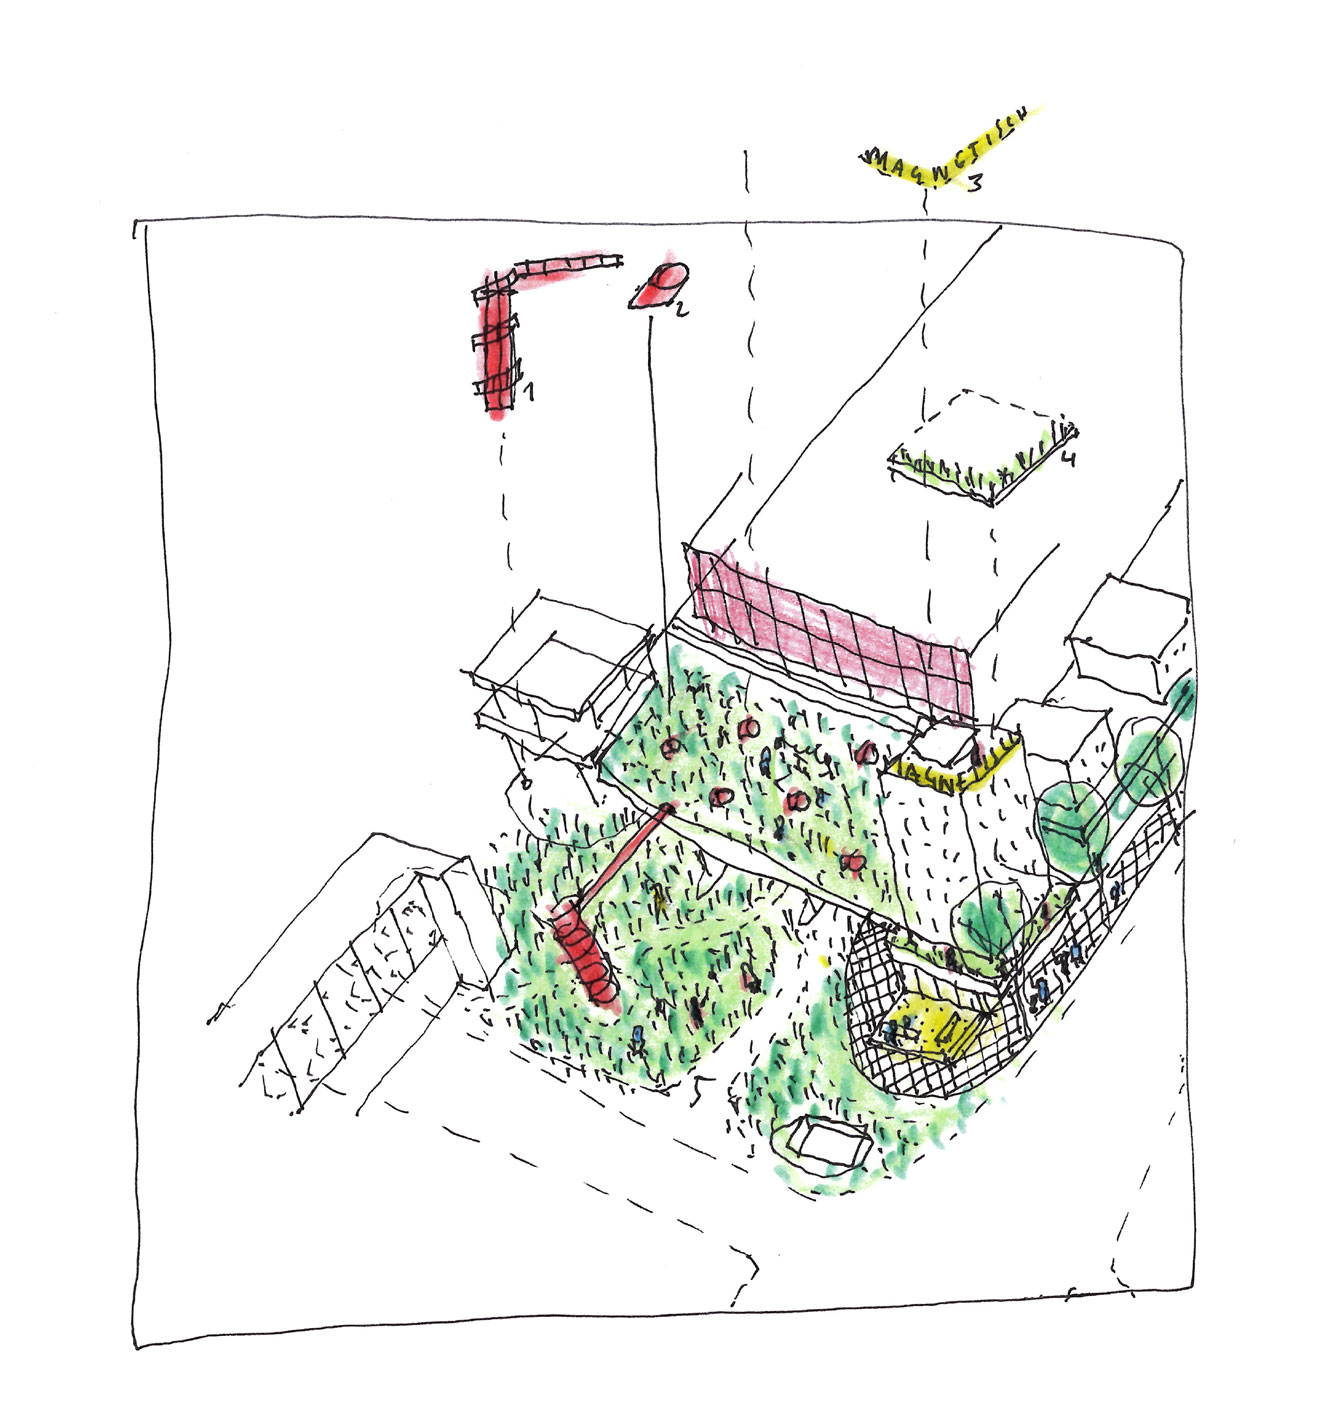 MAGNETISCH
3
2
1
4
MAGNE
5